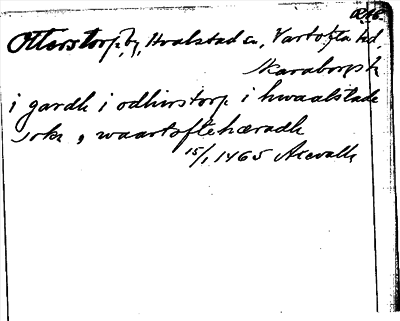 RAP.
Otterstorp, by, Hvalstad sn, Vartofta hd,
Skaraborgs l.
i gardh i odhirstorp i hwaalstada
sokn, waartoftehæradh
15/1 1465 Axevalla